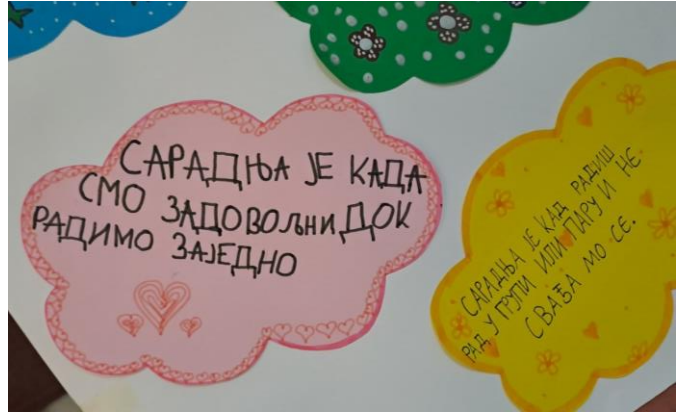 САРАДЊА ЈЕ КАДА
СМО ЗАДОВОЉНИ ДОК
РАДИМО ЗАЈЕДНО
САРАДЊА ЈЕ КАД РАДИШ
РАД У ГРУПИ ИЛИ ПАРУ И НЕ
СВАЂА МО СЕ.